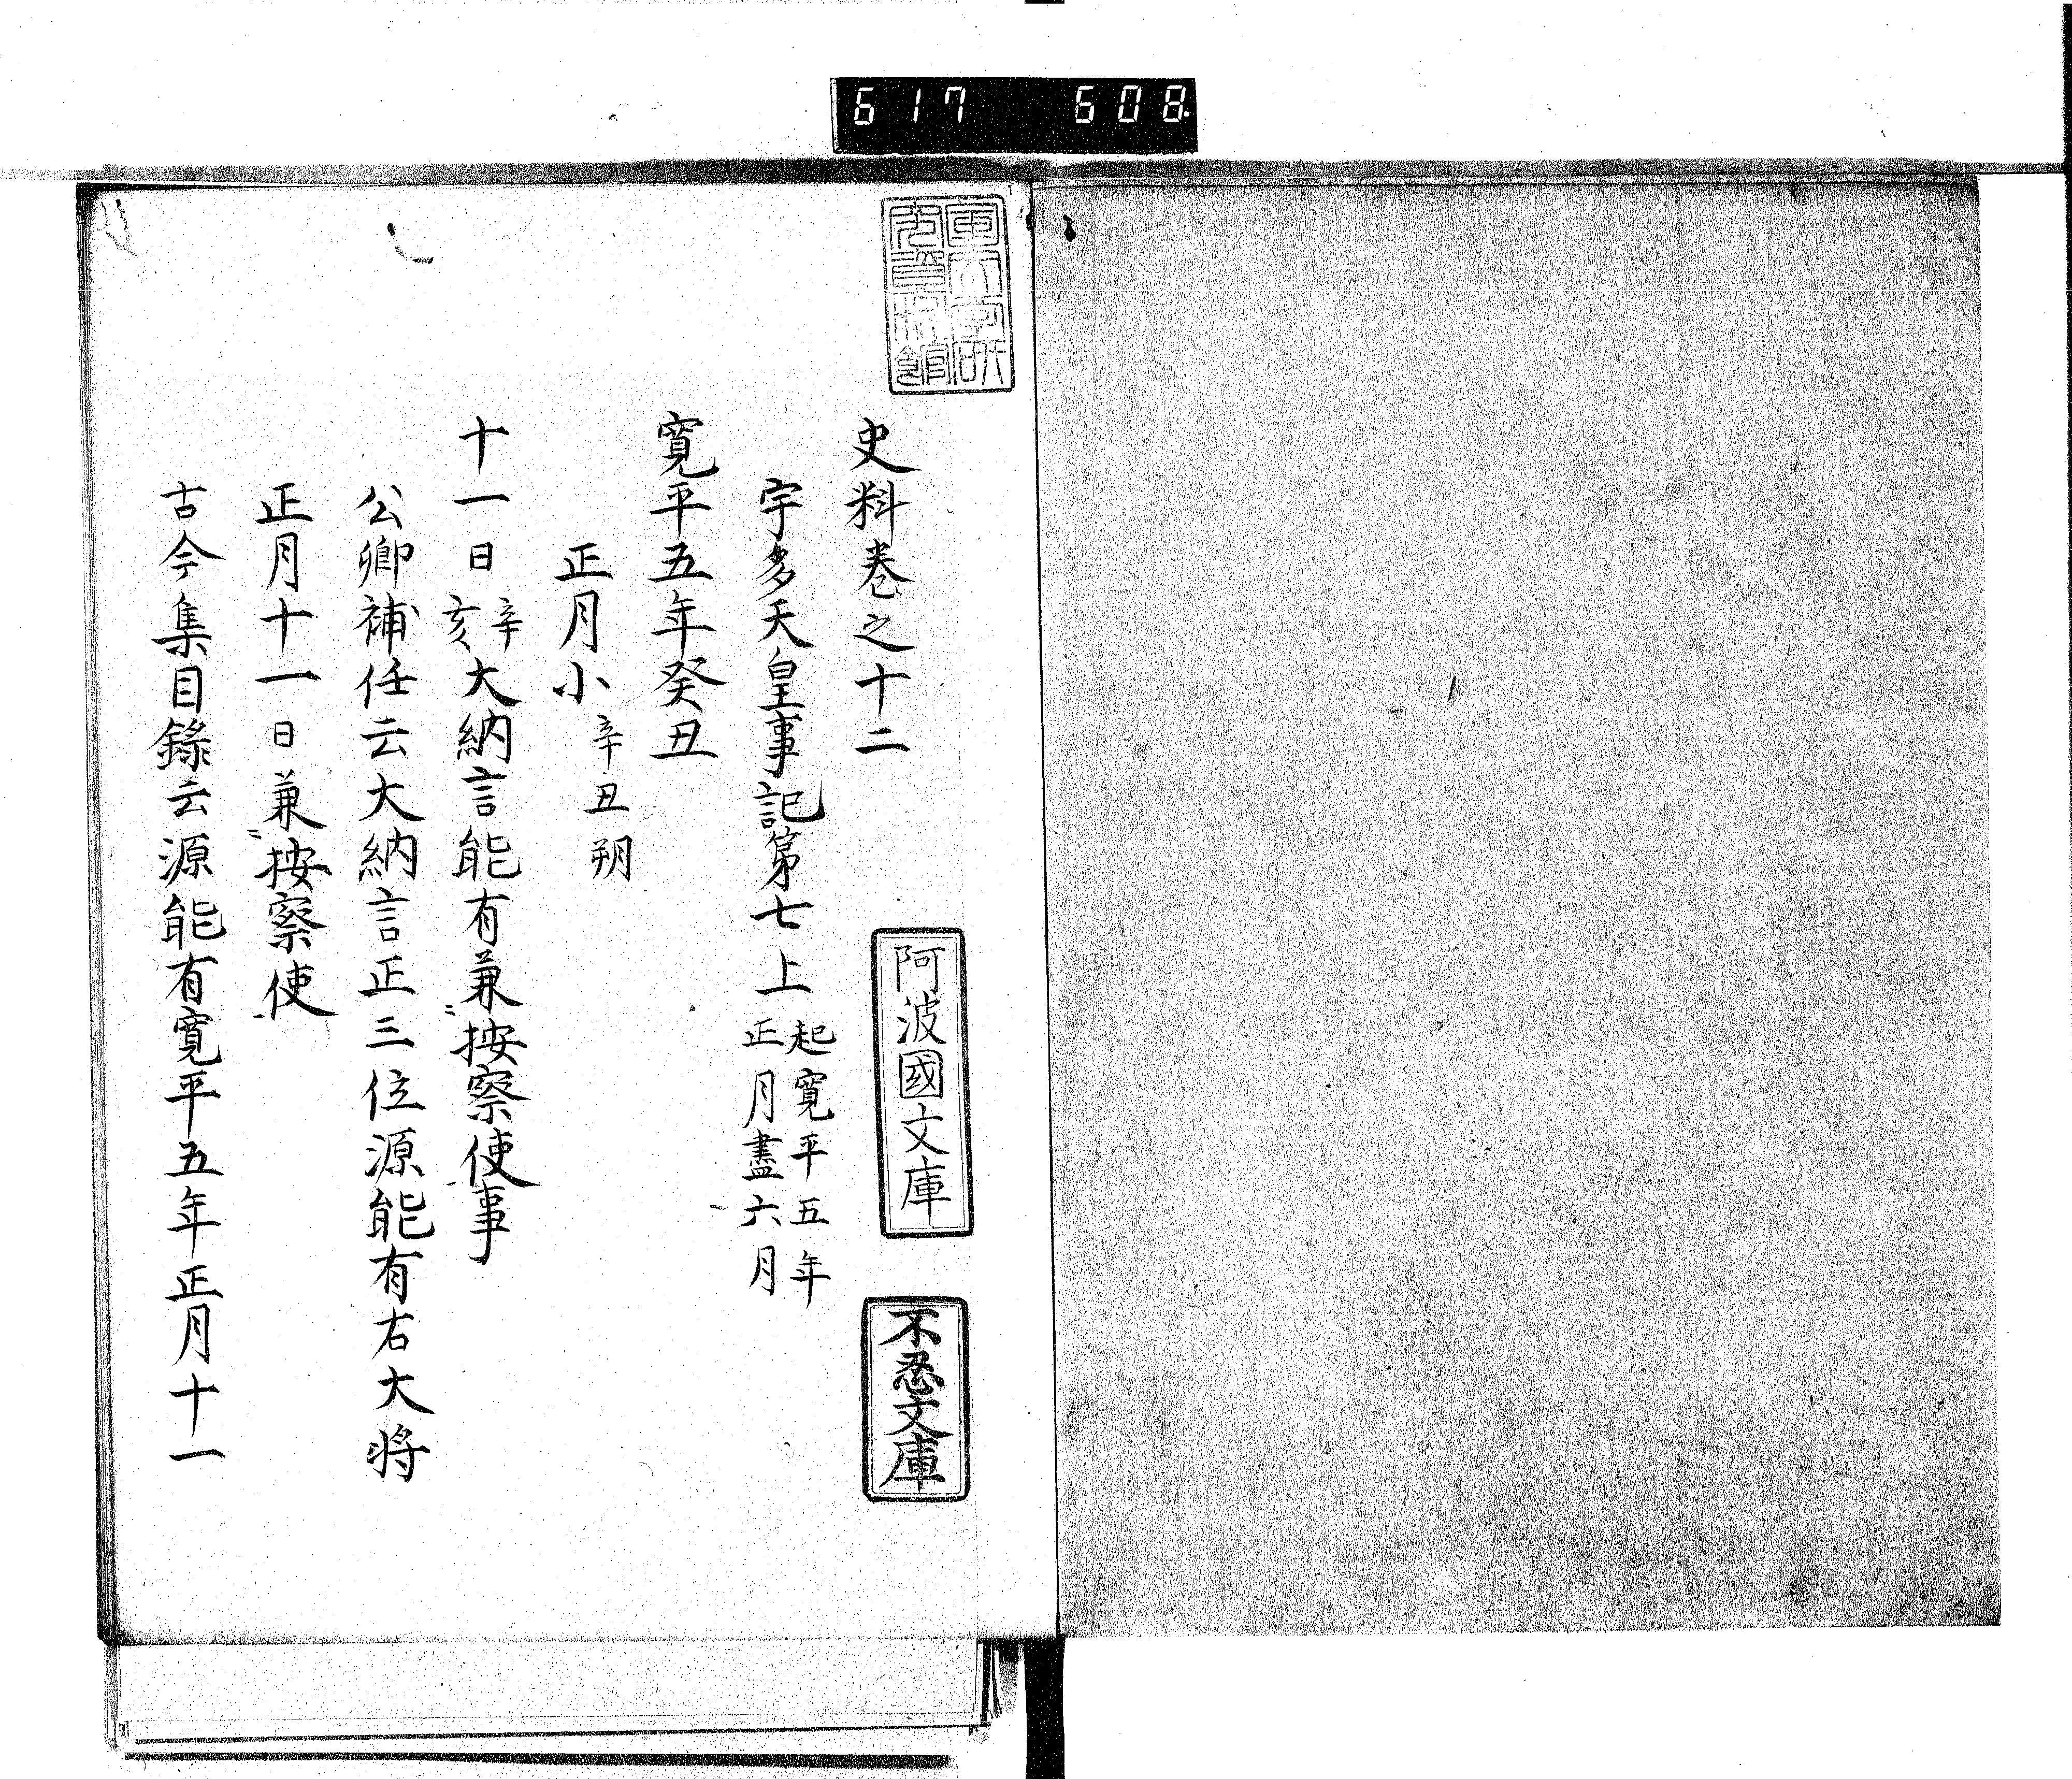 617 608
史料卷之十二
阿波國文庫
不忍文庫
宇多天皇事記第七上 起寛平五年 正月盡六月
寛平五年癸丑
正月小 辛丑朔
十一日 辛亥 大納言能有兼按察使事
公卿補任云大納言正三位源能有右大将
正月十一日兼按察使
古今集目錄云源能有寛平五年正月十一